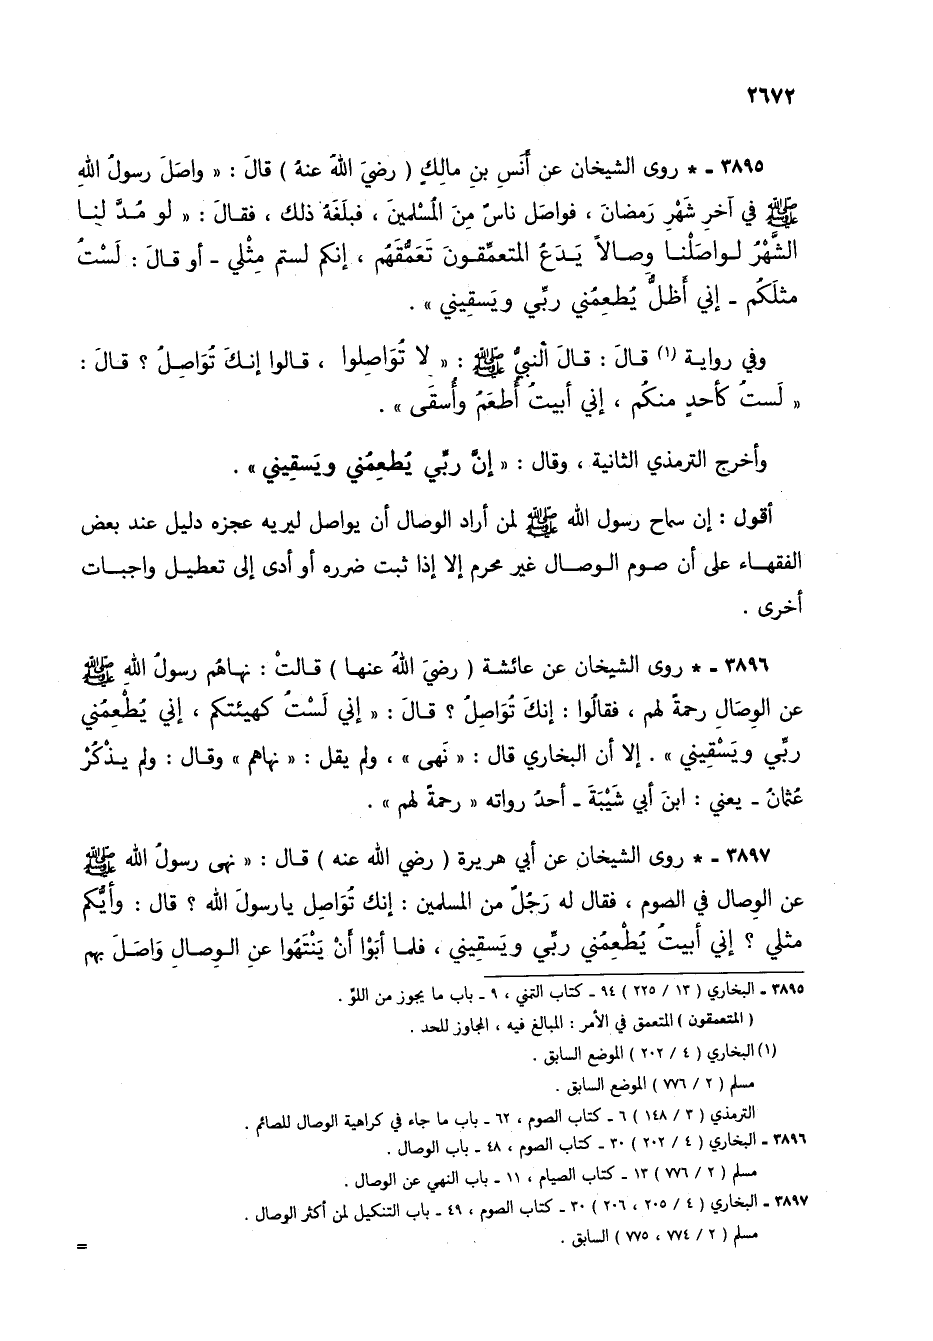 ٢٦٧٢
٣٨٩٥ - * روى الشيخان عن أَنَسِ بنِ مالِكٍ ( رضيَ اللهُ عنهُ ) قالَ : « واصَلَ رسولُ اللهِ
ﷺ في آخرِ شَهْرِ رَمضانَ ، فواصَل ناسٌ مِنَ المُسْلمينَ ، فبلَغَهُ ذلك ، فقالَ : « لو مُدَّ لنِـا
الشَّهْرُ لـواصَلْنـا وِصـالاً يَـدَعُ المتعمِّقـونَ تَعَمُّقَهُم ، إنكم لستم مِثْلي - أو قـالَ : لَسْتُ
مثلَكُم - إني أَظَلُّ يُطعِمُني ربِّي ويَسقِيني » .
وفي روايـة (١) قـالَ : قـالَ النبيُّ ﷺ : « لا تُوَاصِلوا ، قـالوا إنـكَ تُوَاصِـلُ ؟ قـالَ :
« لَستُ كأحدٍ منكُم ، إني أبيتُ أُطعَمُ وأُسقَى » .
وأخرج الترمذي الثانية ، وقال : « إنَّ ربِّي يُطعِمُني ويَسقِيني » .
أقول : إن سماح رسول الله ﷺ لمن أراد الوصال أن يواصل ليريه عجزه دليل عند بعض
الفقهـاء على أن صوم الـوصـال غير محرم إلا إذا ثبت ضرره أو أدى إلى تعطيـل واجبـات
أخرى .
٣٨٩٦ - * روى الشيخان عن عائشة ( رضيَ اللهُ عنهـا ) قـالتْ : نهـاهُم رسولُ اللهِ ﷺ
عن الوِصَالِ رحمةً لهم ، فقالُوا : إنكَ تُوَاصِلُ ؟ قـالَ : « إني لَسْتُ كهيئتكم ، إني يُطْعِمُني
ربِّي ويَسْقِيني » . إلا أن البخاري قال : « نَهى » ، ولم يقل : « نهاهم » وقال : ولم يـذْكُرْ
عُثمانُ - يعني : ابنَ أبي شَيْبَةَ - أحدُ رواته « رحمةً لهم » .
٣٨٩٧ - * روى الشيخان عن أبي هريرة ( رضي الله عنه ) قـال : « نهى رسولُ الله ﷺ
عن الوِصال في الصوم ، فقال له رَجُلٌ من المسلمين : إنك تُوَاصِل يارسولَ الله ؟ قال : وأيُّكم
مثلي ؟ إني أبيتُ يُطْعِمُني ربِّي ويَسقِيني ، فلمـا أبَوْا أَنْ يَنْتَهُوا عنِ الـوِصـالِ وَاصَلَ بهم
٣٨٩٥ - البخاري ( ١٣ / ٢٢٥ ) ٩٤ - كتاب التمني ، ٩ - باب ما يجوز من اللوّ .
( المتعمقون ) المتعمق في الأمر : المبالغ فيه ، المجاوز للحد .
(١) البخاري ( ٤ / ٢٠٢ ) الموضع السابق .
مسلم ( ٢ / ٧٧٦ ) الموضع السابق .
الترمذي ( ٣ / ١٤٨ ) ٦ - كتاب الصوم ، ٦٢ - باب ما جاء في كراهية الوصال للصائم .
٣٨٩٦ - البخاري ( ٤ / ٢٠٢ ) ٣٠ - كتاب الصوم ، ٤٨ - باب الوصال .
مسلم ( ٢ / ٧٧٦ ) ١٣ - كتاب الصيام ، ١١ - باب النهي عن الوصال .
٣٨٩٧ - البخاري ( ٤ / ٢٠٥ ، ٢٠٦ ) ٣٠ - كتاب الصوم ، ٤٩ - باب التنكيل لمن أكثر الوصال .
مسلم ( ٢ / ٧٧٤ ، ٧٧٥ ) السابق .
=